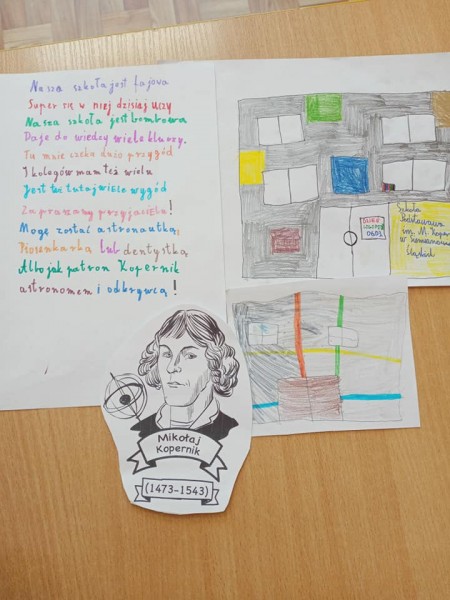 Nasza szkoła jest fajowa
Super się w niej dzisiaj uczy
Nasza szkoła jest bombowa
Daje do wiedzy wiele kluczy.
Tu mnie czeka dużo przygód
I kolegów mam też wielu
Jest tu tutaj wiele wygód
Zapraszamy przyjacielu!
Mogę zostać astronautką,
Piosenkarką lub dentystką
Albo jak patron Kopernik
astronomem i odkrywcą!
Szkoła
Podstawowa
im. M. Koper
w
Śląskich
Mikołaj
Kopernik
(1473-1543)